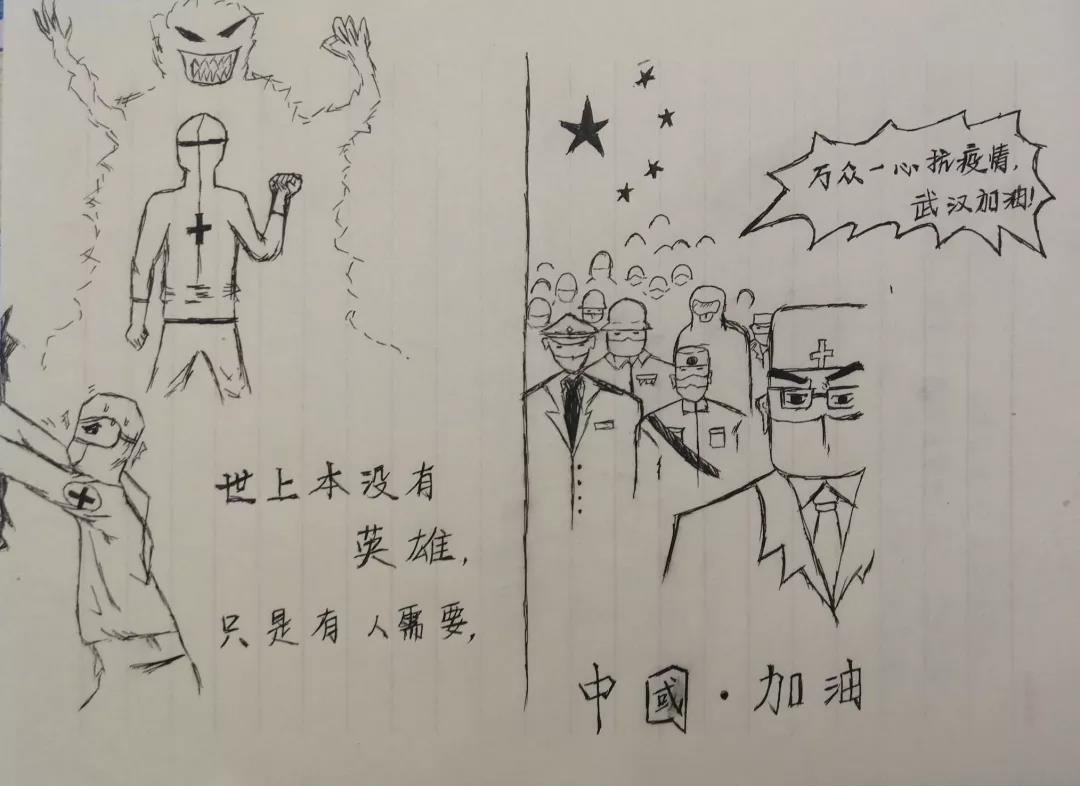 世上本没有
英雄,
只是有人需要,
万众一心抗疫情,
武汉加油!
中國·加油